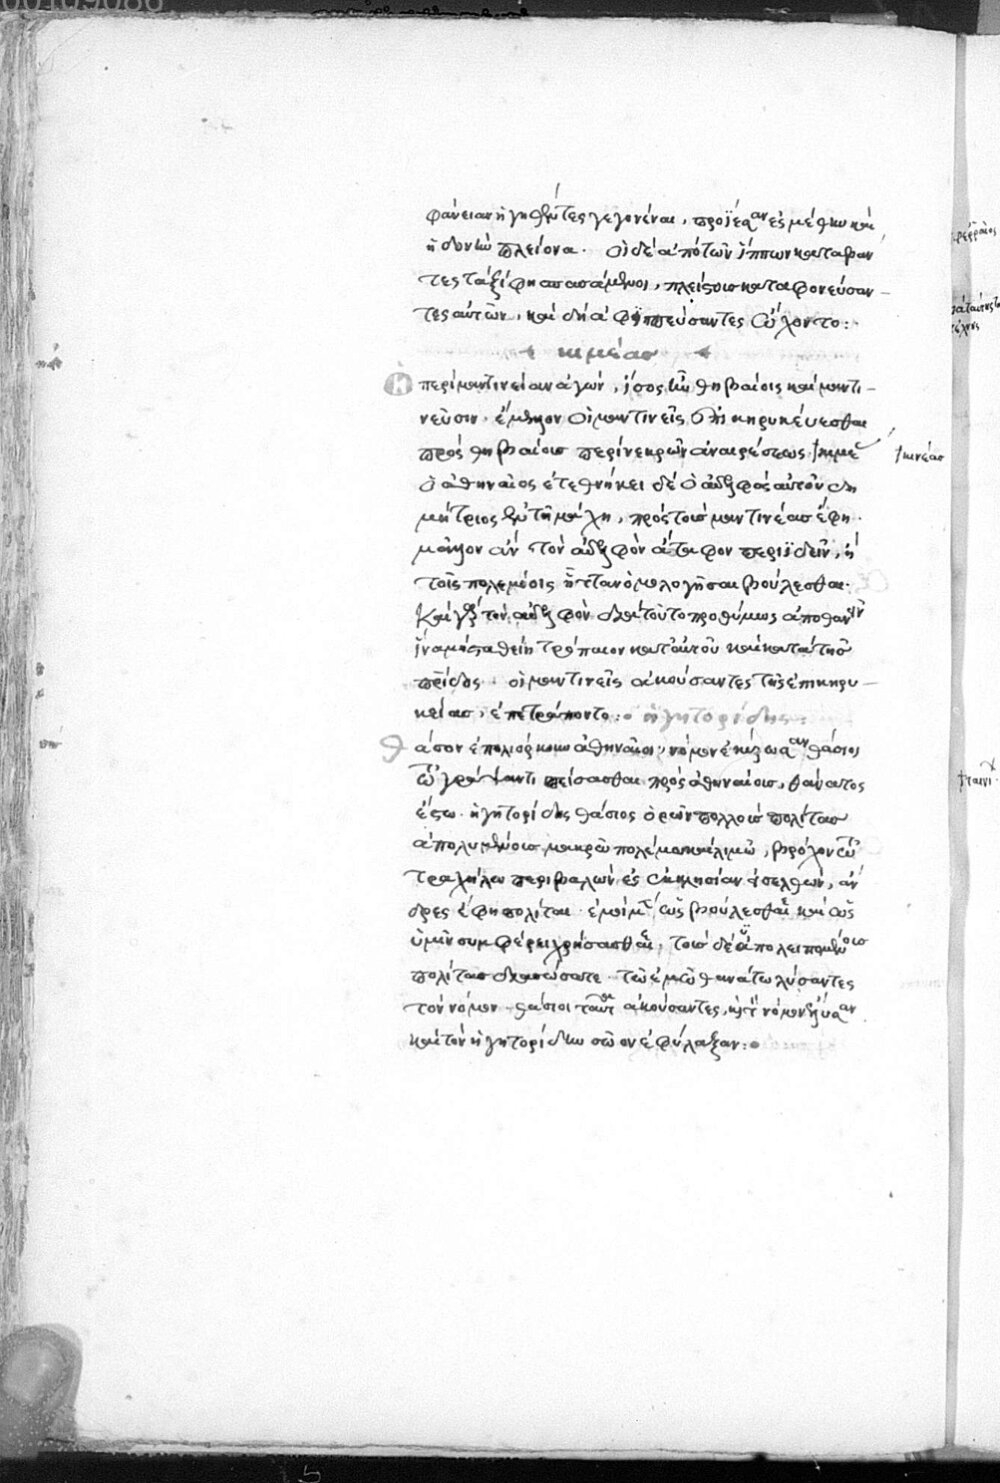 φάνειαν ἡγηθέντες γεγονέναι, προϊέασαν ἐς μέθην καὶ
ἡδονὴν πλείονα. Οἱ δὲ ἀπὸ τῶν ἵππων καταβάν
τες τὰ ξίφη σπασάμενοι, πλείστους καταφονεύσαν
τες αὐτῶν, καὶ δὴ ἀφιππεύσαντες ᾤχοντο:
κιμέας
Ὁ περὶ μαντινείαν ἀγών, ἴσος ἦν θηβαίοις καὶ μαντι
νεῦσιν. ἔμελλον οἱ μαντινεῖς ἐπικηρυκεύεσθαι
πρὸς θηβαίους περὶ νεκρῶν ἀναιρέσεως. κιμέας
ὁ ἀθηναῖος ἐτεθνήκει δὲ ὁ ἀδελφὸς αὐτοῦ δη
μήτριος ἐν τῇ μάχῃ, πρὸς τοὺς μαντινέας ἔφη.
μᾶλλον ἂν τὸν ἀδελφὸν ἄταφον περιϊδεῖν, ἢ
τοῖς πολεμίοις ἧτταν ὁμολογῆσαι βούλεσθαι.
Καὶ γὰρ τὸν ἀδελφὸν διὰ τοῦτο προθύμως ἀποθανεῖν
ἵνα μὴ σταθείη τρόπαιον κατ' αὐτοῦ καὶ κατὰ τῆς
πατρίδος. οἱ μαντινεῖς ἀκούσαντες τῆς ἐπικηρυ
κείας, ἐπετράποντο: ἡγητορίδης:
θάσον ἐπολιόρκουν ἀθηναῖοι, νόμον ἐκύρωσαν θάσιοι
τῷ γράψαντι πείσασθαι πρὸς ἀθηναίους, θάνατος
ἔστω. ἡγητορίδης θάσιος ὁρῶν πολλοὺς πολίτας
ἀπολυμένους μακρῷ πολέμῳ καὶ λιμῷ, βρόχον τῷ
τραχήλῳ περιβαλὼν ἐς ἐκκλησίαν εἰσελθών, ἄν
δρες ἔφη πολῖται. ἐμοὶ μὲν ὡς βούλεσθαι καὶ ὡς
ὑμῖν συμφέρει χρήσασθαι. τοὺς δὲ ὑπολειπομένους
πολίτας διασώσατε. τῷ ἐμῷ θανάτῳ λύσαντες
τὸν νόμον. θάσιοι ταῦτα ἀκούσαντες, καὶ τὸν νόμον ἔλυσαν
καὶ τὸν ἡγητορίδην σῶον ἐφύλαξαν:
κινέας